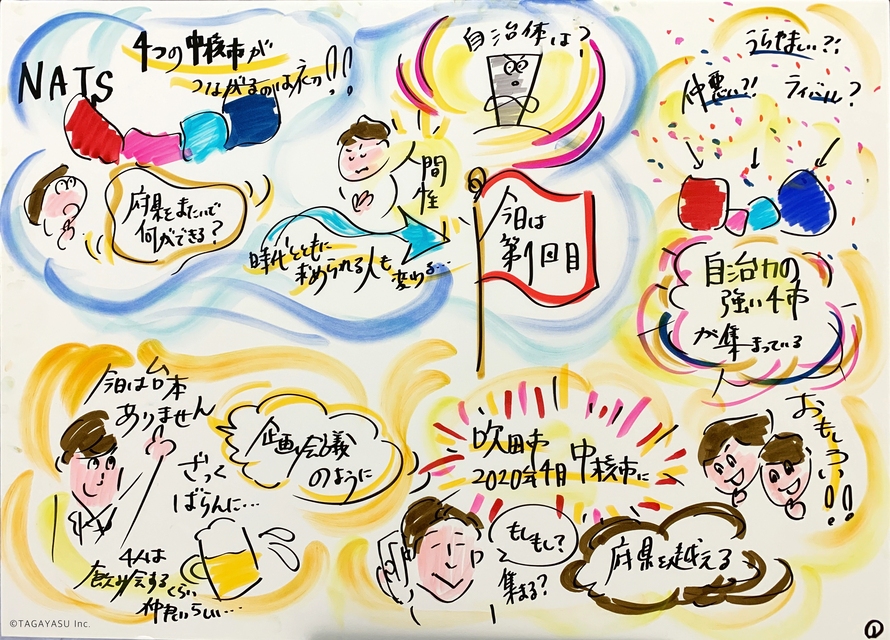 NATS
4つの中核市が
つながるのは初!!
府県をまたいで
何ができる?
問
時代とともに
求められる人も
変わる…
自治体は?
今日は
第1回目
うらやましい?!
仲悪い?!
ライバル?
自治力の
強い4市
が集まっている
今日は台本
ありません
ざっく
ばらんに…
企画会議
のように
4人は
飲み会するくらい
仲良いらしい…
吹田市
2020年4月
中核市に
もしもし?
集まる?
府県を越える
おもしろい!!
©TAGAYASU Inc.
1